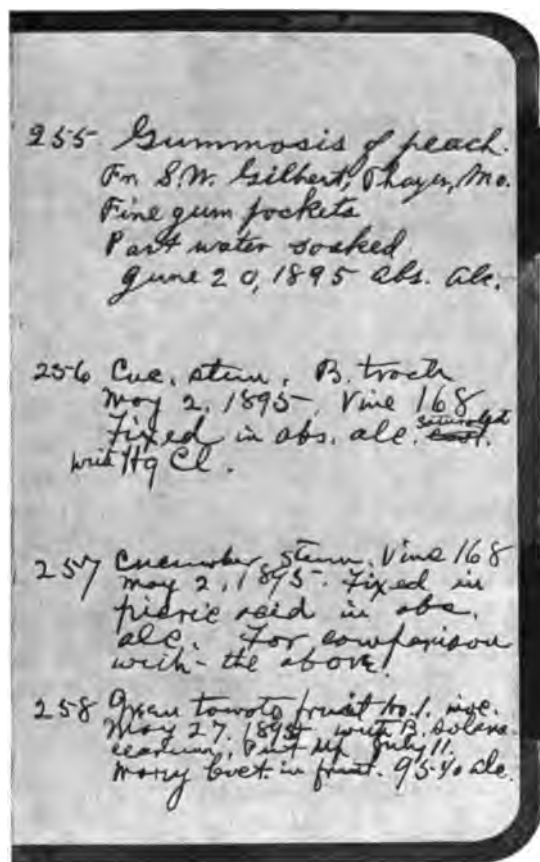 255 Gummosis of peach.
Fr. S.W. Gilbert, Thayer, Mo.
Fine gum pockets
Part water soaked
June 20, 1895 abs. alc.
256 Cuc. stem. B. trach
May 2, 1895. Vine 168
Fixed in abs. alc. saturated
with Hg Cl.
257 Cucumber stem. Vine 168
May 2, 1895. Fixed in
picric acid in abs.
alc. For comparison
with the above.
258 Green tomato fruit No. 1. inoc.
May 27, 1895 with B. solana-
cearum. Put up July 11.
Many bact. in fruit. 95% alc.